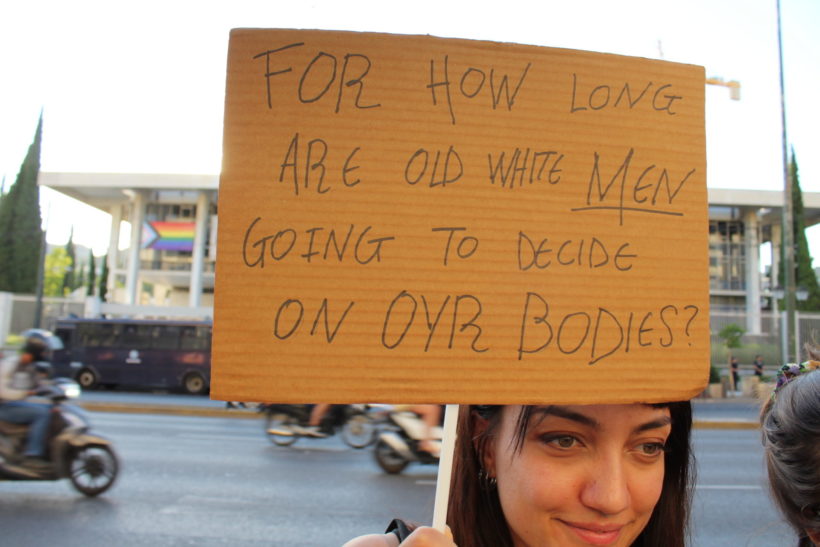 FOR HOW LONG
ARE OLD WHITE MEN
GOING TO DECIDE
ON OYR BODIES?